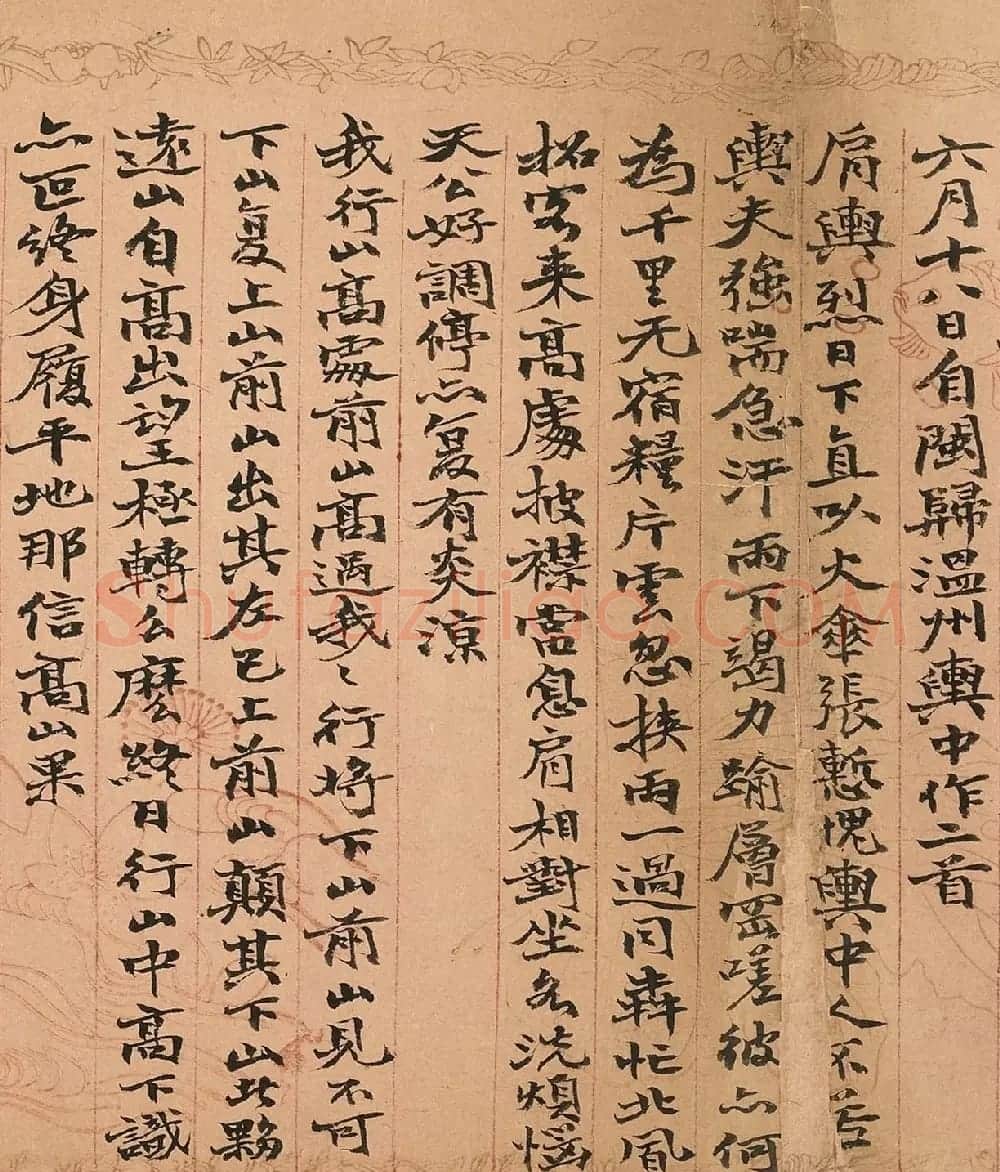 六月十八日自閩歸溫州輿中作二首
肩輿烈日下直以火傘張慙愧輿中人不若
輿夫強喘急汗雨下竭力踰層岡嗟彼亦何
為千里无宿糧片雲忽挾雨一過同犇忙北風
招客来高處披襟當息肩相對坐各洗煩惱
天公好調停亦复有炎涼
我行山高處前山高過我〻行將下山前山見不可
下山复上山前山出其左已上前山顛其下山此夥
遠山自高出望極轉么麼終日行山中高下識
亦叵終身履平地那信高山果
Shufaziliao.COM